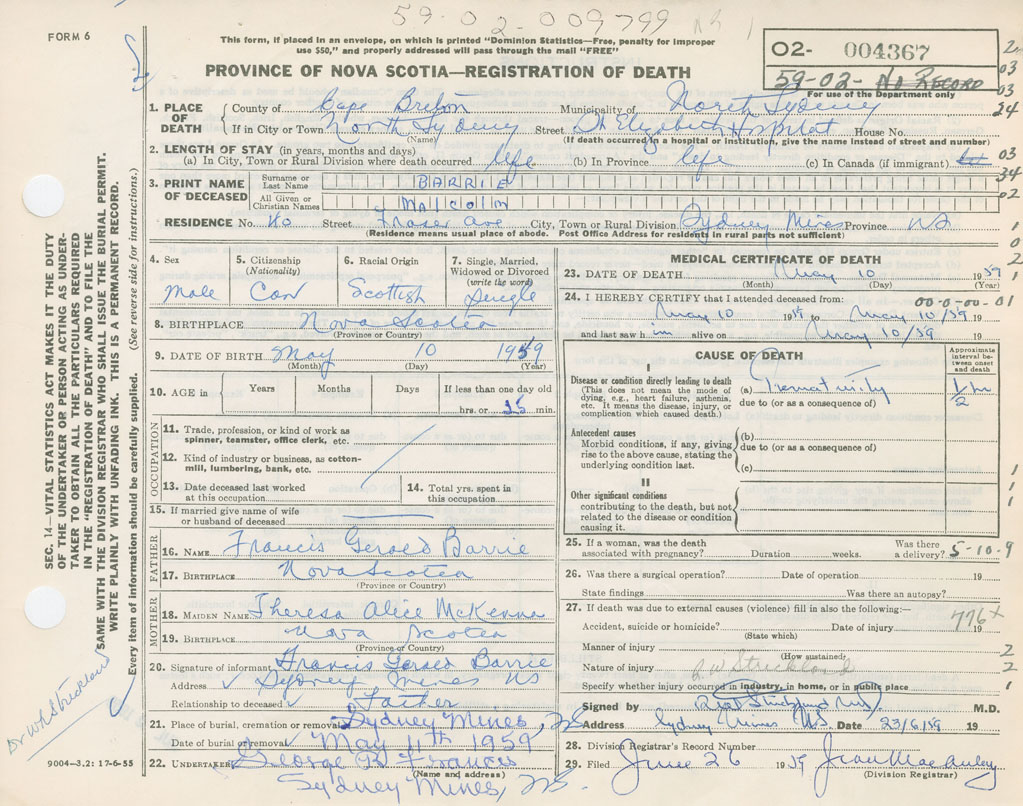 59-02-009799
FORM 6
This form, if placed in an envelope, on which is printed "Dominion Statistics—Free, penalty for improper
use $50," and properly addressed will pass through the mail "FREE"
O2- 004367
59-02- No RECORD
For use of the Department only
PROVINCE OF NOVA SCOTIA—REGISTRATION OF DEATH
1. PLACE OF DEATH
County of Cape Breton Municipality of North Sydney
If in City or Town North Sydney Street St Elizabeth Hospital House No.
(Name) (If death occurred in a hospital or institution, give the name instead of street and number)
2. LENGTH OF STAY (in years, months and days)
(a) In City, Town or Rural Division where death occurred life (b) In Province life (c) In Canada (if immigrant)
3. PRINT NAME OF DECEASED
Surname or Last Name BARRIE
All Given or Christian Names MALCOLM
RESIDENCE No. 40 Street Fraser Ave City, Town or Rural Division Sydney Mines Province NS
(Residence means usual place of abode. Post Office Address for residents in rural parts not sufficient)
4. Sex Male
5. Citizenship (Nationality) Can
6. Racial Origin Scottish
7. Single, Married, Widowed or Divorced (write the word) Single
8. BIRTHPLACE Nova Scotia
(Province or Country)
9. DATE OF BIRTH May 10 1959
(Month) (Day) (Year)
10. AGE in Years Months Days If less than one day old
hrs. or 25 min.
OCCUPATION
11. Trade, profession, or kind of work as
spinner, teamster, office clerk, etc.
12. Kind of industry or business, as cotton-
mill, lumbering, bank, etc.
13. Date deceased last worked
at this occupation
14. Total yrs. spent in
this occupation
15. If married give name of wife
or husband of deceased
FATHER
16. NAME Francis Gerald Barrie
17. BIRTHPLACE Nova Scotia
(Province or Country)
MOTHER
18. MAIDEN NAME Theresa Alice McKenna
19. BIRTHPLACE Nova Scotia
(Province or Country)
20. Signature of informant Francis Gerald Barrie
Address Sydney Mines NS
Relationship to deceased Father
21. Place of burial, cremation or removal Sydney Mines, NS.
Date of burial or removal May 11th 1959
22. UNDERTAKER George R Francis
(Name and address)
Sydney Mines, NS.
9004—3.2: 17-6-55
MEDICAL CERTIFICATE OF DEATH
23. DATE OF DEATH May 10 1959
(Month) (Day) (Year)
24. I HEREBY CERTIFY that I attended deceased from: 00-0-00-01
May 10 1959 to May 10/59
and last saw him alive on May 10/59
CAUSE OF DEATH
Approximate interval between onset and death
I
Disease or condition directly leading to death
(This does not mean the mode of
dying, e.g., heart failure, asthenia,
etc. It means the disease, injury, or
complication which caused death.)
(a) Prematurity 1/2 hr
due to (or as a consequence of)
Antecedent causes
Morbid conditions, if any, giving
rise to the above cause, stating the
underlying condition last.
(b)
due to (or as a consequence of)
(c)
II
Other significant conditions
contributing to the death, but not
related to the disease or condition
causing it.
25. If a woman, was the death
associated with pregnancy? Duration weeks. Was there a delivery? 5-10-9
26. Was there a surgical operation? Date of operation 19
State findings Was there an autopsy?
27. If death was due to external causes (violence) fill in also the following:—
776x
Accident, suicide or homicide? Date of injury 19
(State which)
Manner of injury
(How sustained)
Nature of injury Strickland
Specify whether injury occurred in industry, in home, or in public place
Signed by Strickland M.D.
Address Sydney Mines NS. Date 23/6/59 19
28. Division Registrar's Record Number
29. Filed June 26 1959 Jean MacAuley
(Division Registrar)
SEC. 14—VITAL STATISTICS ACT MAKES IT THE DUTY
OF THE UNDERTAKER OR PERSON ACTING AS UNDER-
TAKER TO OBTAIN ALL THE PARTICULARS REQUIRED
IN THE "REGISTRATION OF DEATH" AND TO FILE THE
SAME WITH THE DIVISION REGISTRAR WHO SHALL ISSUE THE BURIAL PERMIT.
WRITE PLAINLY WITH UNFADING INK. THIS IS A PERMANENT RECORD.
Every item of information should be carefully supplied. (See reverse side for instructions.)
Dr Strickland
03
03
24
03
34
02
1
0
2
1
1
1
1
2
2
1